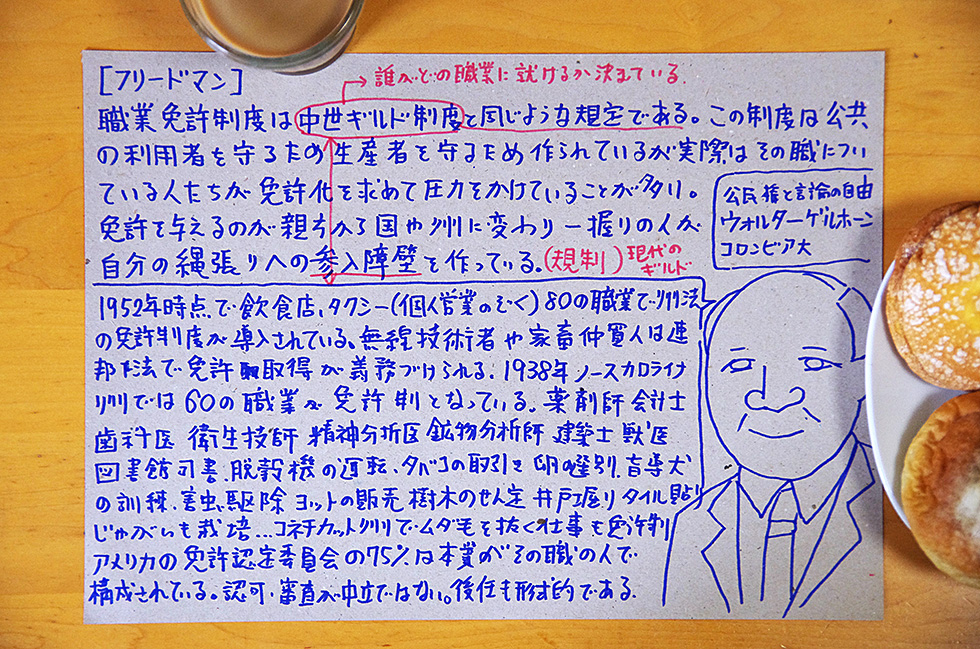 [フリードマン]
誰がどの職業に就けるか決まている.
職業免許制度は中世ギルド制度と同じような規定である。この制度は公共
の利用者を守るため生産者を守るため作られているが実際はその職につい
ている人たちが免許化を求めて圧力をかけていることが多り。
免許を与えるのが親方から国や州に変わり一握りの人が
自分の縄張りへの参入障壁を作っている。(規制)
現代の
ギルド
公民権と言論の自由
ウォルターゲルホーン
コロンビア大
1952年時点で飲食店、タクシー(個人営業のぞく)80の職業で州法
の免許制度が導入されている、無線技術者や家畜仲買人は連
邦下法で免許取得が義務づけられる. 1938年ノースカロライナ
州では60の職業が免許制となっている. 薬剤師会計士
歯科医 衛生技師 精神分折医 鉱物分析師 建築士獣医
図書館司書、脱穀機の運転、タバコの取引き 卵選別、盲導犬
の訓練、害虫駆除 ヨットの販売 樹木のせん定 井戸掘りタイル貼り
じゃがいも栽培...コネチカット州でムダ毛を抜く仕事も免許制
アメリカの免許認定委員会の75%は本業がその職の人で
構成されている. 認可・審査が中立ではない。後任も形式的である.